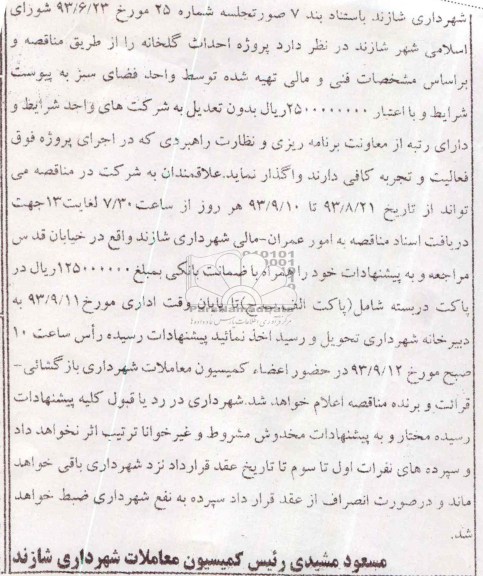 شهرداری شازند باستناد بند ۷ صورتجلسه شماره ۲۵ مورخ ۹۳/۶/۲۳ شورای
اسلامی شهر شازند در نظر دارد پروژه احداث گلخانه را از طریق مناقصه و
براساس مشخصات فنی و مالی تهیه شده توسط واحد فضای سبز به پیوست
شرایط و با اعتبار ۲۵۰۰۰۰۰۰۰۰ریال بدون تعدیل به شرکت های واجد شرایط و
دارای رتبه از معاونت برنامه ریزی و نظارت راهبردی که در اجرای پروژه فوق
فعالیت و تجربه کافی دارند واگذار نماید.علاقمندان به شرکت در مناقصه می
تواند از تاریخ ۹۳/۸/۲۱ تا ۹۳/۹/۱۰ هر روز از ساعت۷/۳۰ لغایت۱۳جهت
دریافت اسناد مناقصه به امور عمران-مالی شهرداری شازند واقع در خیابان قدس
مراجعه و به پیشنهادات خود را همراه با ضمانت بانکی بمبلغ۱۲۵۰۰۰۰۰۰ریال در
پاکت دربسته شامل(پاکت الف-ب-ج)تا پایان وقت اداری مورخ۹۳/۹/۱۱ به
دبیرخانه شهرداری تحویل و رسید اخذ نمائید پیشنهادات رسیده رأس ساعت ۱۰
صبح مورخ ۹۳/۹/۱۲در حضور اعضاء کمیسیون معاملات شهرداری بازگشائی-
قرائت و برنده مناقصه اعلام خواهد شد.شهرداری در رد یا قبول کلیه پیشنهادات
رسیده مختار و به پیشنهادات مخدوش مشروط و غیرخوانا ترتیب اثر نخواهد داد
و سپرده های نفرات اول تا سوم تا تاریخ عقد قرارداد نزد شهرداری باقی خواهد
ماند و درصورت انصراف از عقد قرار داد سپرده به نفع شهرداری ضبط خواهد
شد.
مسعود مشیدی رئیس کمیسیون معاملات شهرداری شازند